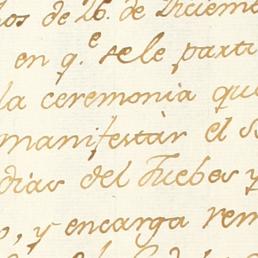 os de 26. de Diciem
en q.e se le parti
la ceremonia que
manifestàr el S
dias del Juebes y
o, y encarga rem